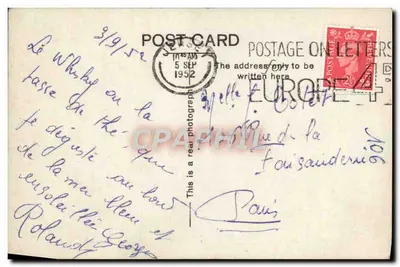 3/9/52
POST CARD
JERSEY
10 45 AM
5 SEP
1952
POSTAGE ON LETTERS
EUROPE 4
The address only to be
written here
Le Whisky ou la
tasse de thé que
je déguste au bord
de la mer bleue et
ensoleillée Georges
Roland
This is a real photograph
Rue de la
Faisanderie
Paris
CPARAMA.COM